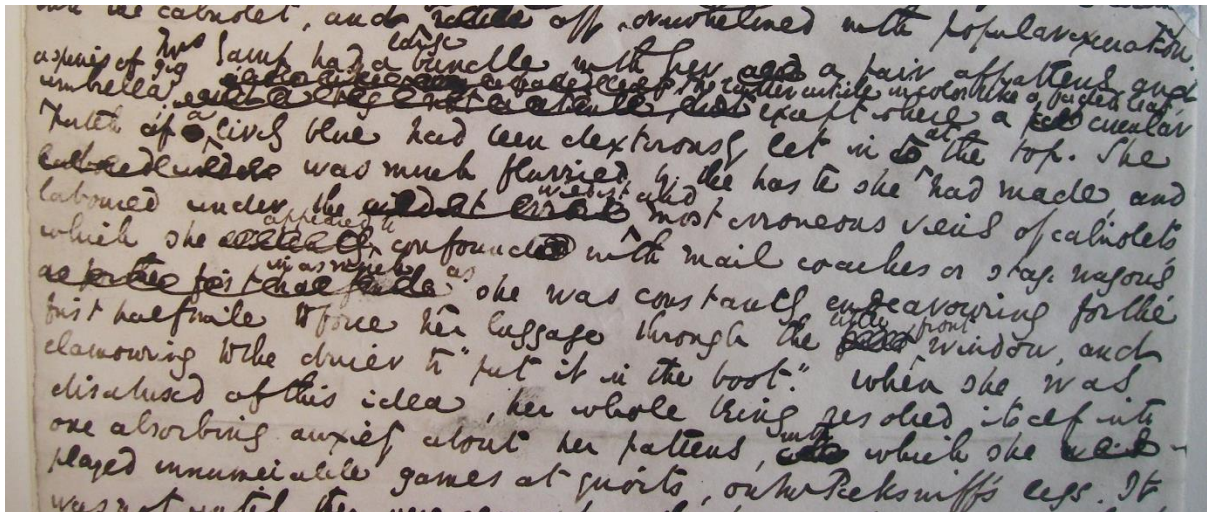 the cabriolet, and off, overwhelmed with popular execration.
Mrs Gamp had a large bundle with her, and a pair of pattens, and
a species of gig umbrella; the latter article in color like a faded leaf,
except where a circular
patch of a lively blue had been dexterously let in at the top. She
was much flurried by the haste she had made, and
laboured under the most erroneous views of cabriolets
which she appeared to confound with mail coaches or stage waggons
inasmuch as she was constantly endeavouring for the
first half mile to force her luggage through the little front window, and
clamouring to the driver to "put it in the boot." When she was
disabused of this idea, her whole being resolved itself into
one absorbing anxiety about her pattens, with which she
played innumerable games at quoits, on Mr Pecksniff's legs. It
was not until